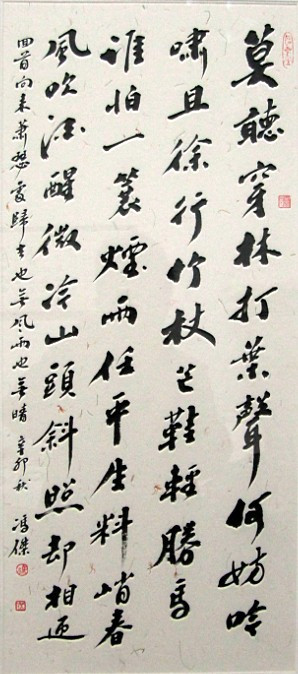 莫聽穿林打葉聲何妨吟
嘯且徐行竹杖芒鞋輕勝馬
誰怕一蓑煙雨任平生料峭春
風吹酒醒微冷山頭斜照却相迎
回首向来蕭瑟處歸去也無風雨也無晴 辛卯秋 馮傑